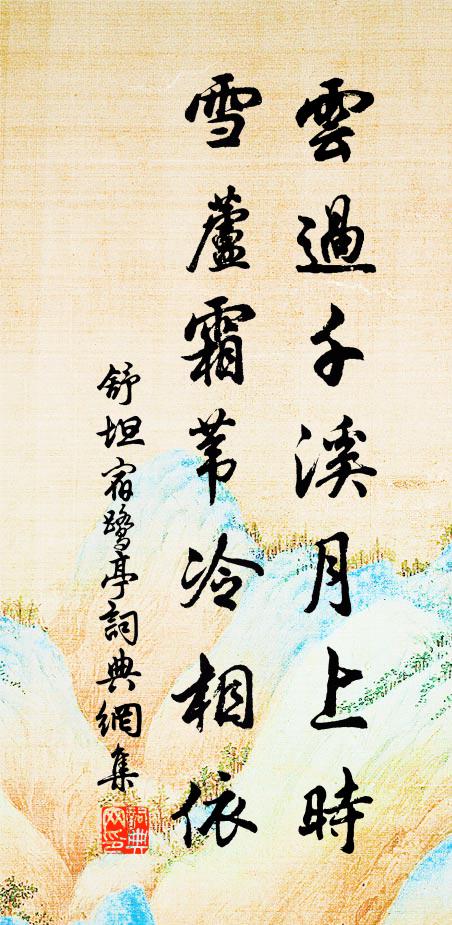 雲過千溪月上時
雪蘆霜葦冷相依
舒坦宿鷺亭詞典網集
詞典
网印